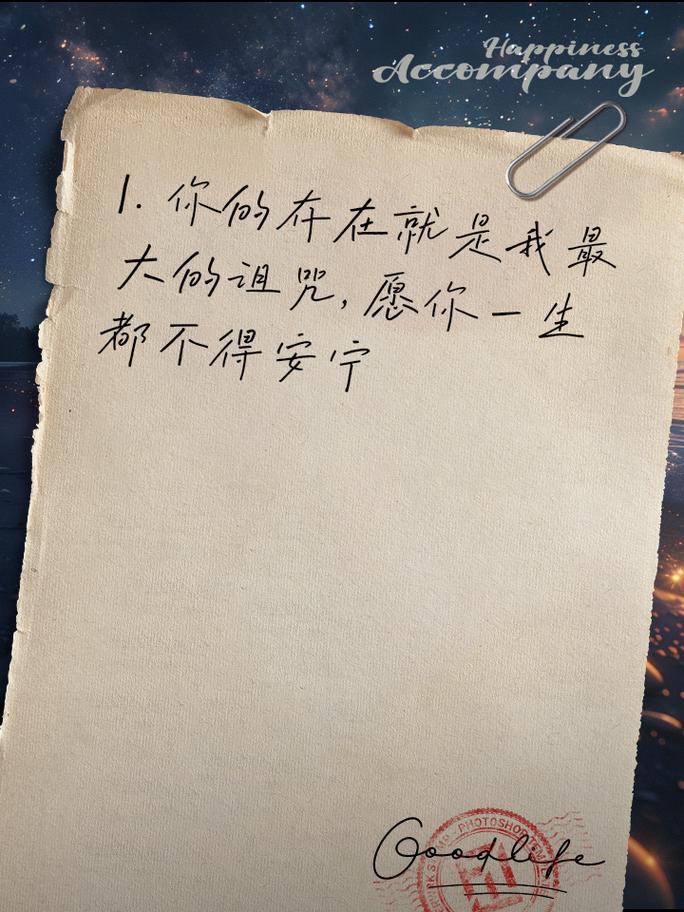 Happiness
Accompany
1. 你的存在就是我最
大的诅咒,愿你一生
都不得安宁
PHOTOSHOP
Goodlife